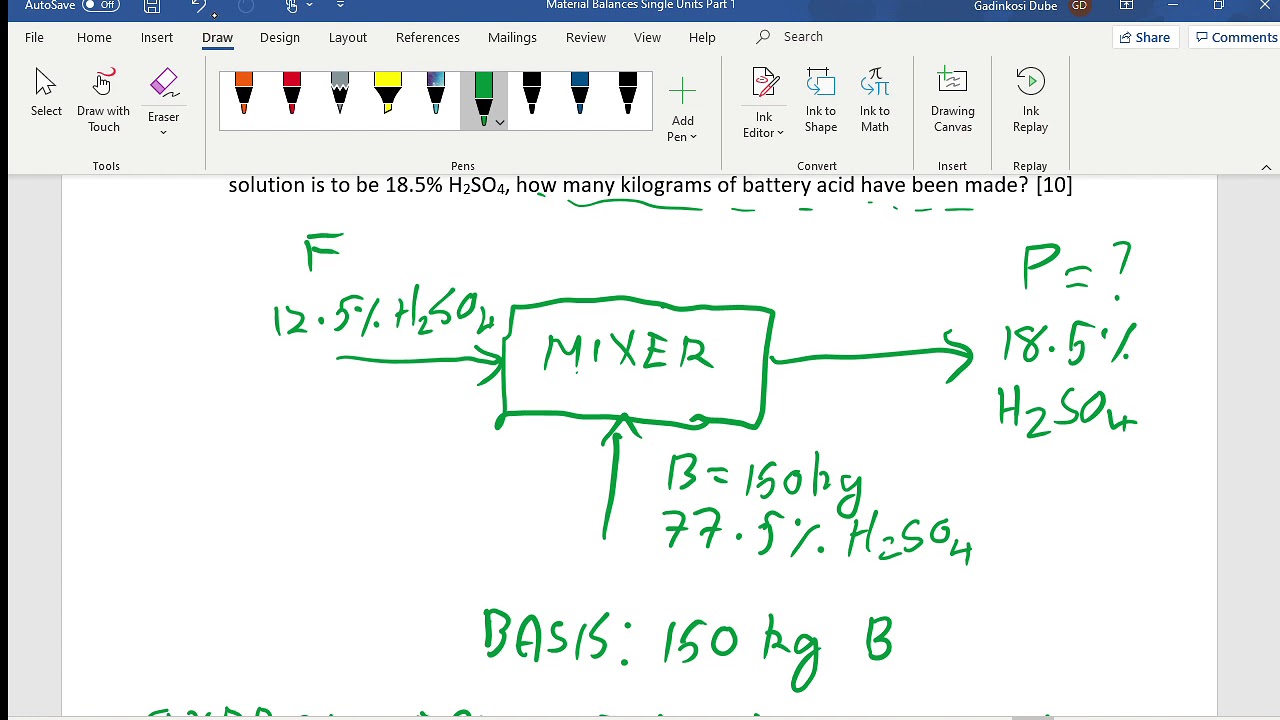 AutoSave Off Material Balances Single Units Part 1 Gadinkosi Dube GD
File Home Insert Draw Design Layout References Mailings Review View Help Search Share Comments
Select Draw with Touch Eraser Add Pen Ink Editor Ink to Shape Ink to Math Drawing Canvas Ink Replay
Tools Pens Convert Insert Replay
solution is to be 18.5% H₂SO₄, how many kilograms of battery acid have been made? [10]
F
P = ?
12.5% H₂SO₄
MIXER
18.5%
H₂SO₄
B = 150 kg
77.5% H₂SO₄
BASIS: 150 kg B